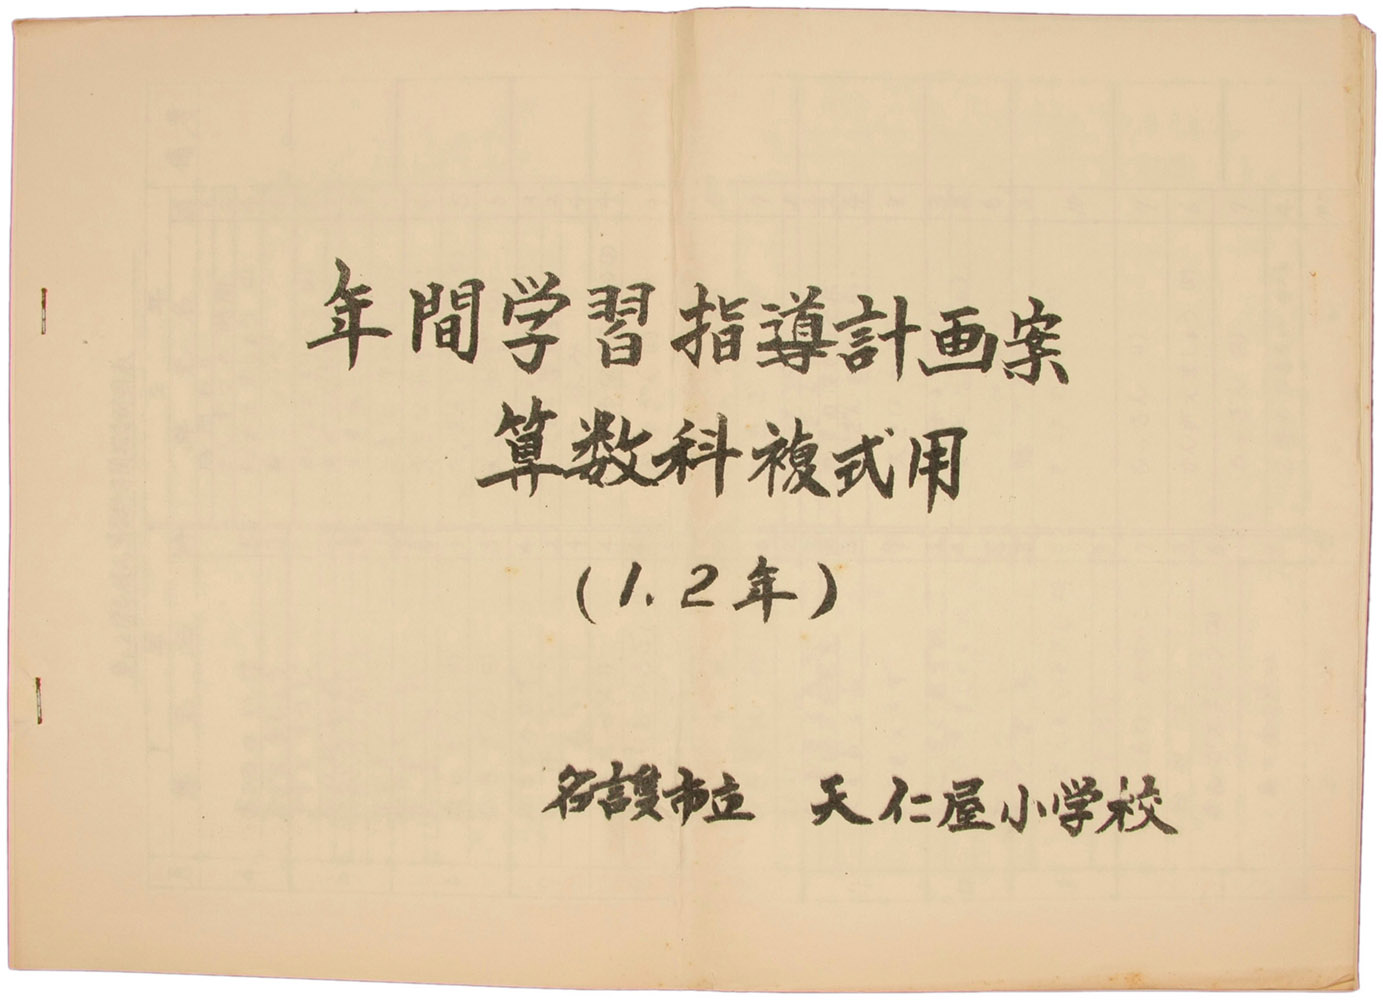 年間学習指導計画案
算数科複式用
(1.2年)
名護市立 天仁屋小学校